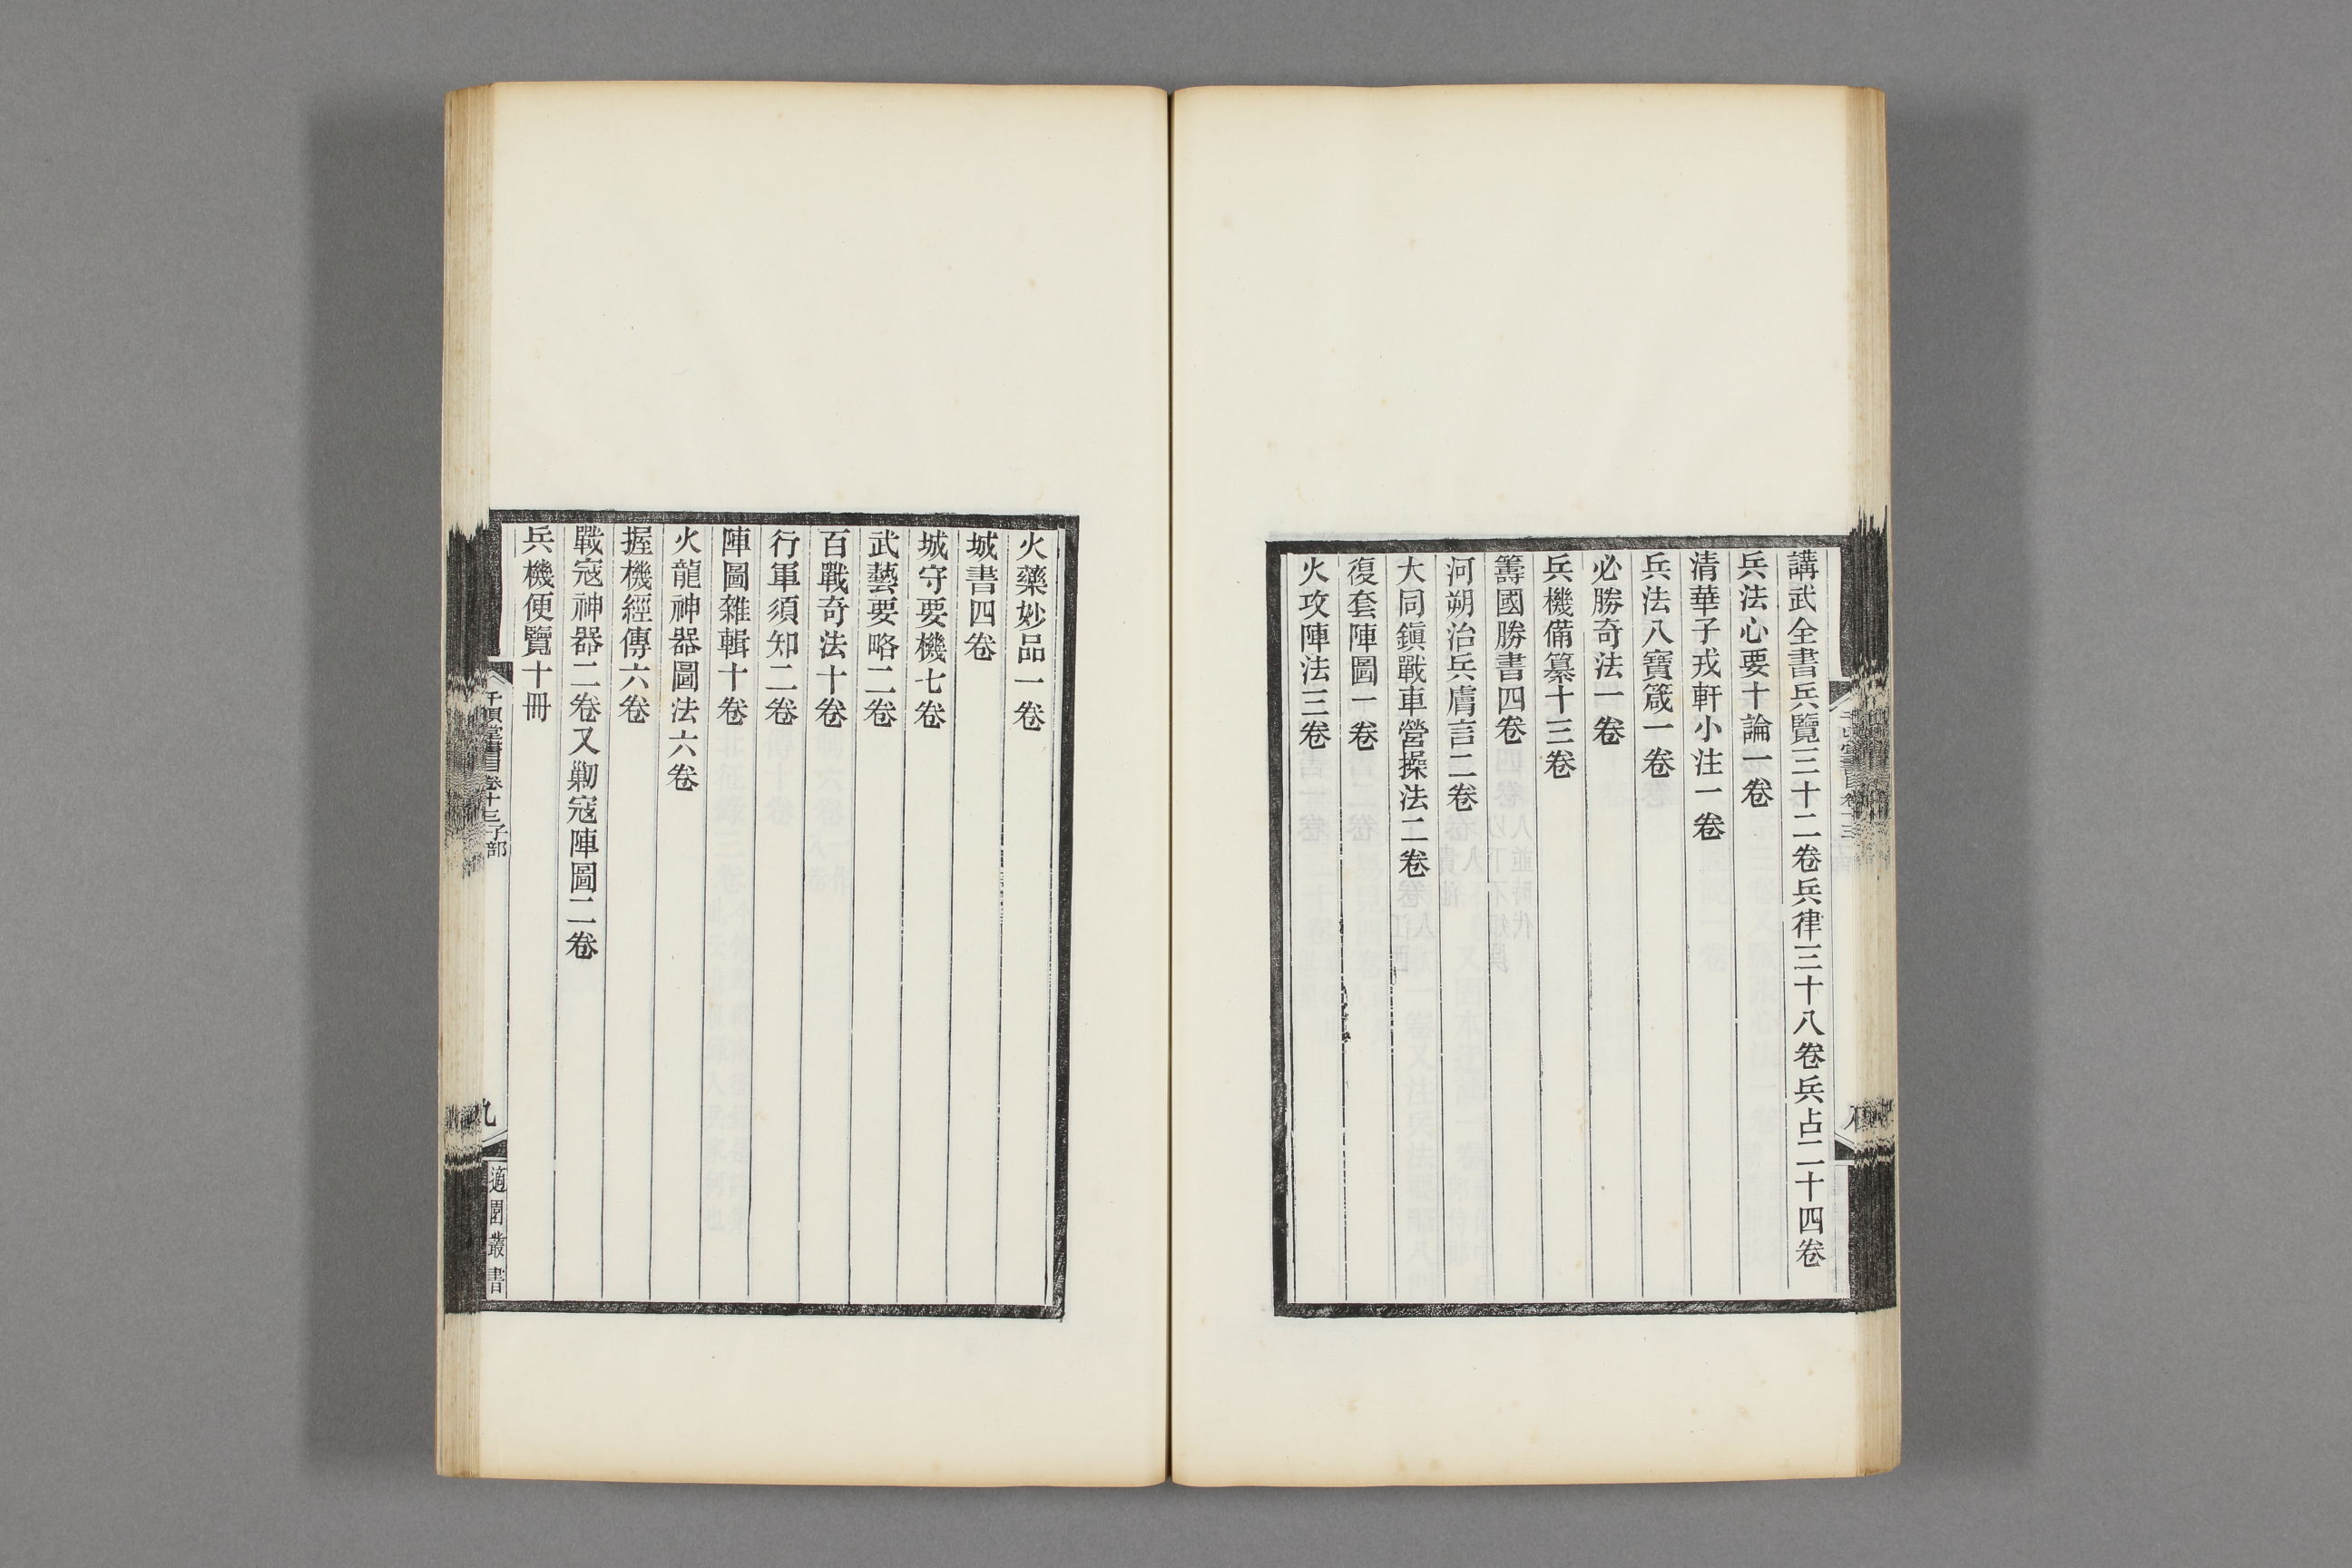 講武全書兵覽三十二卷兵律三十八卷兵占二十四卷
兵法心要十論一卷
清華子戎軒小注一卷
兵法八寶箴一卷
必勝奇法一卷
兵機備纂十三卷
籌國勝書四卷
河朔治兵膚言二卷
大同鎭戰車營操法二卷
復套陣圖一卷
火攻陣法三卷
火藥妙品一卷
城書四卷
城守要機七卷
武藝要略二卷
百戰奇法十卷
行軍須知二卷
陣圖雜輯十卷
火龍神器圖法六卷
握機經傳六卷
戰寇神器二卷又剿寇陣圖二卷
兵機便覽十冊
千頃堂書目卷十三子部
九
適園叢書